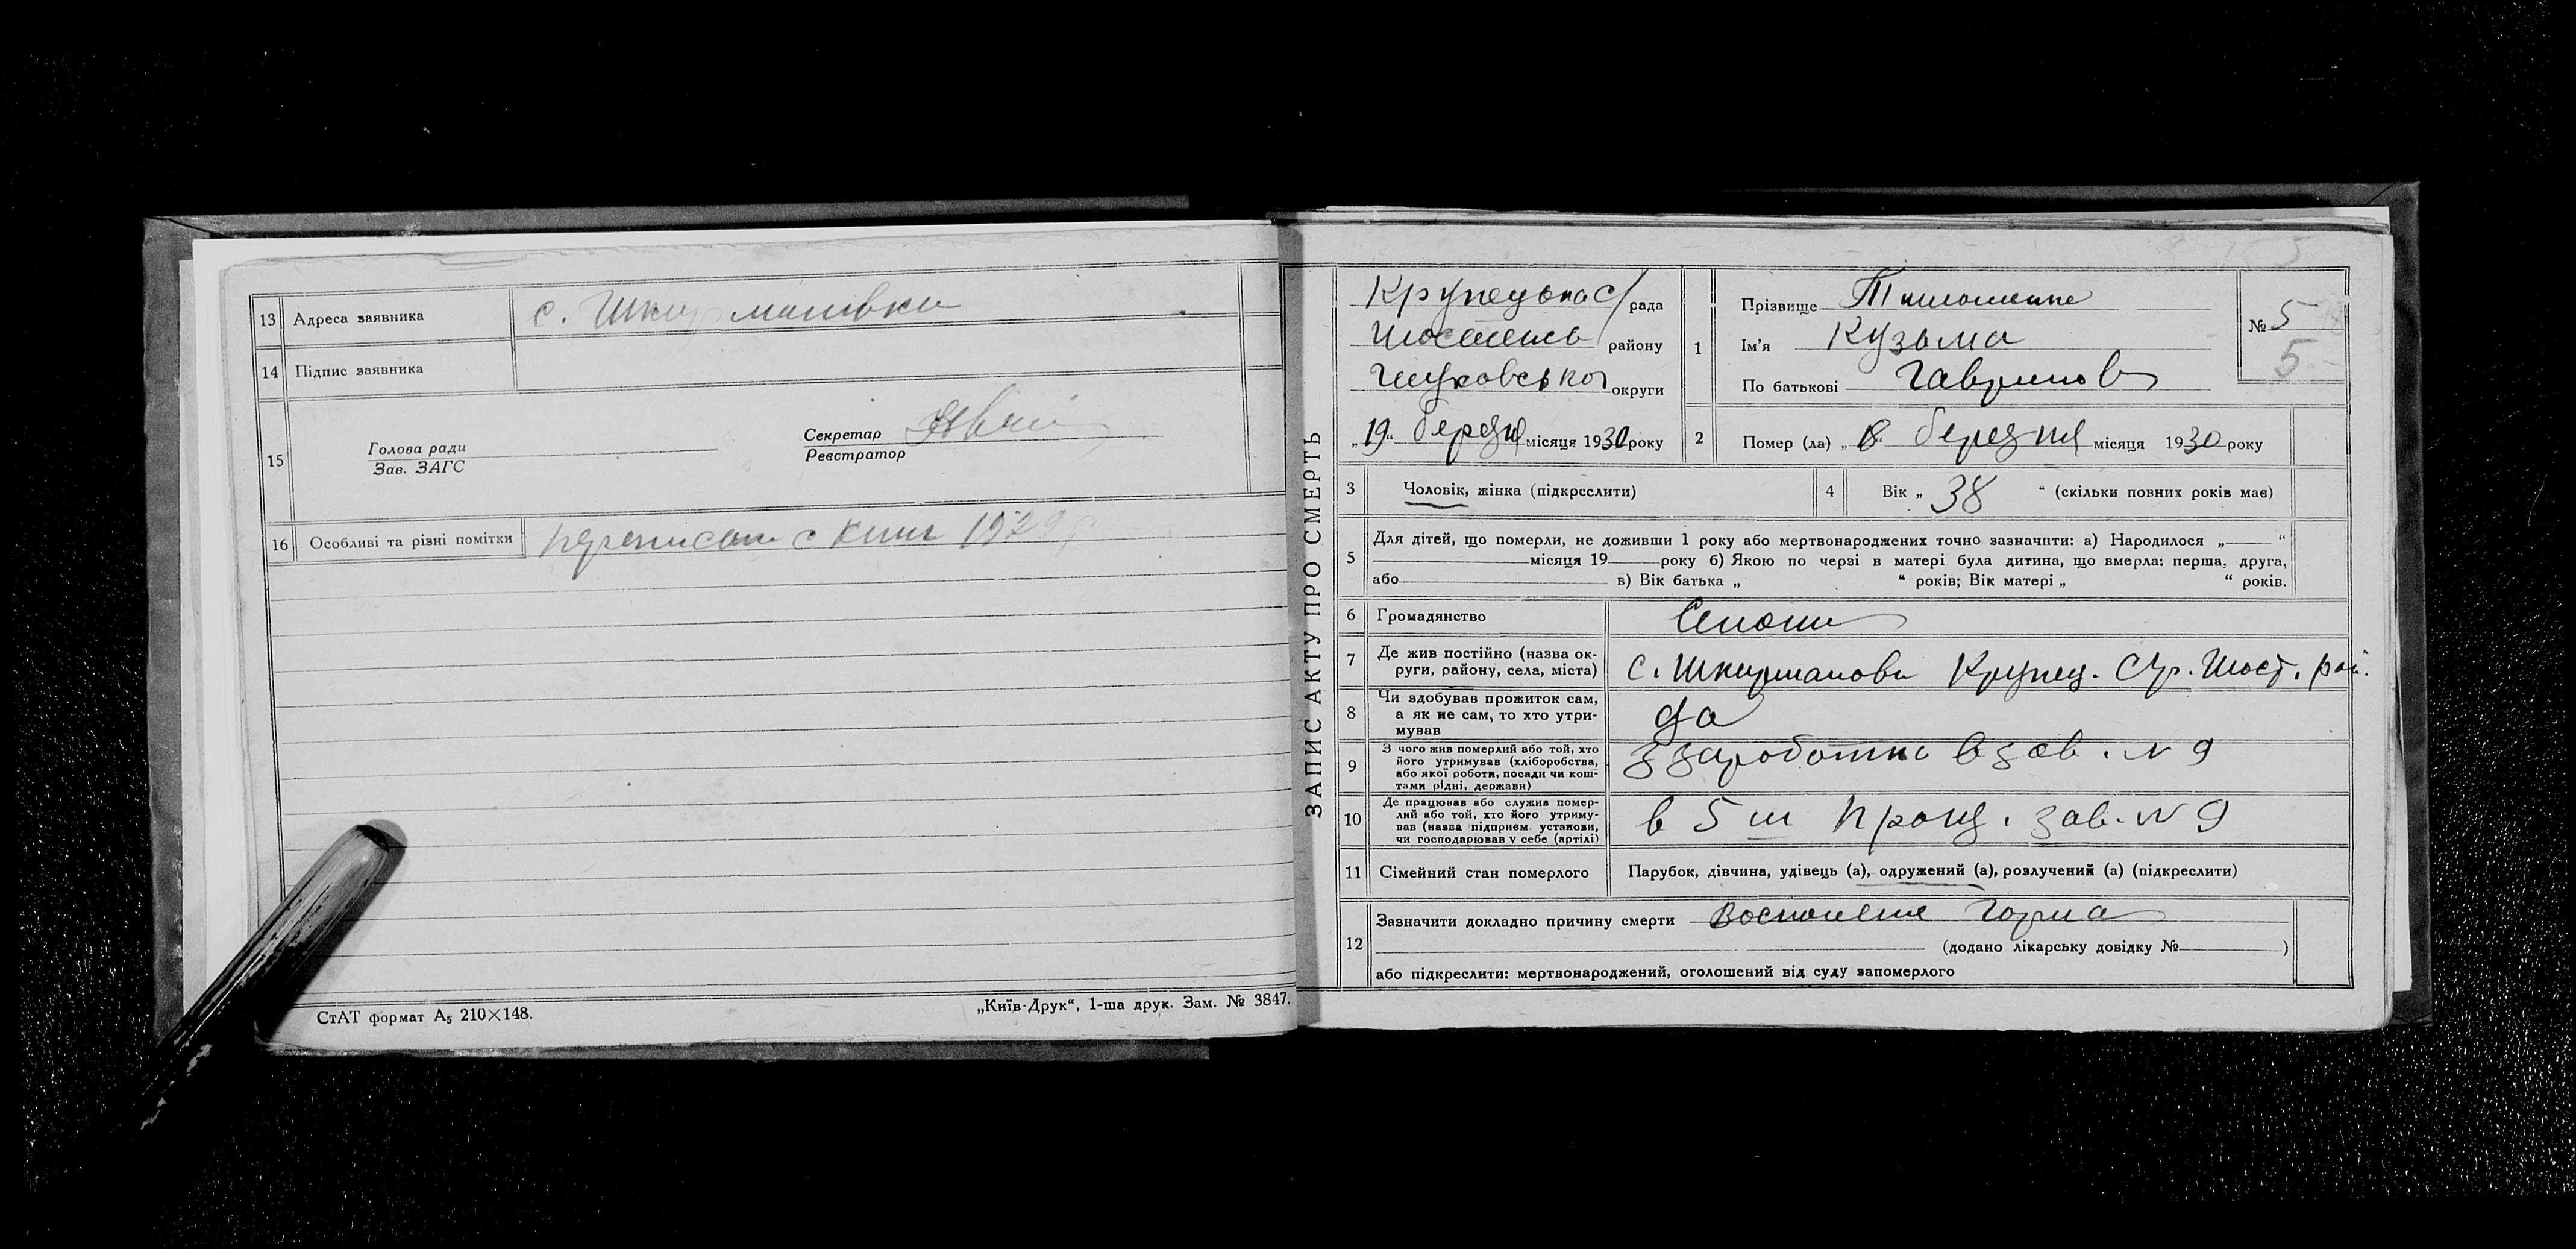 13 Адреса заявника с. Шкурматовка
14 Підпис заявника
15 Голова ради
Зав. ЗАГС
Секретар
Реєстратор
16 Особливі та різні помітки переписан с книг 1929
СтАТ формат А5 210×148.
„Київ-Друк“, 1-ша друк. Зам. № 3847.
ЗАПИС АКТУ ПРО СМЕРТЬ
Крупецька с/рада
району
округи
„19“ березня місяця 1930 року
1 Прізвище Тимошенко
Ім'я Кузьма
По батькові Гаврилов
№ 5
5
2 Помер (ла) „18“ березня місяця 1930 року
3 Чоловік, жінка (підкреслити)
4 Вік „38“ (скільки повних років має)
5 Для дітей, що померли, не доживши 1 року або мертвонароджених точно зазначити: а) Народилося „ “
місяця 19 року б) Якою по черзі в матері була дитина, що вмерла: перша, друга,
або в) Вік батька „ “ років; Вік матері „ “ років.
6 Громадянство
7 Де жив постійно (назва ок-
руги, району, села, міста) с. Крупец. С/р. Шост. рай.
8 Чи здобував прожиток сам,
а як не сам, то хто утри-
мував да
9 З чого жив померлий або той, хто
його утримував (хліборобства,
або якої роботи, посади чи кош-
тами рідні, держави) з заработка в зав. № 9
10 Де працював або служив помер-
лий або той, хто його утриму-
вав (назва підприєм. установи,
чи господарював у себе (артілі) в 5 ш зав. № 9
11 Сімейний стан померлого Парубок, дівчина, удівець (а), одружений (а), розлучений (а) (підкреслити)
12 Зазначити докладно причину смерти Воспаление горла
(додано лікарську довідку № )
або підкреслити: мертвонароджений, оголошений від суду запомерлого